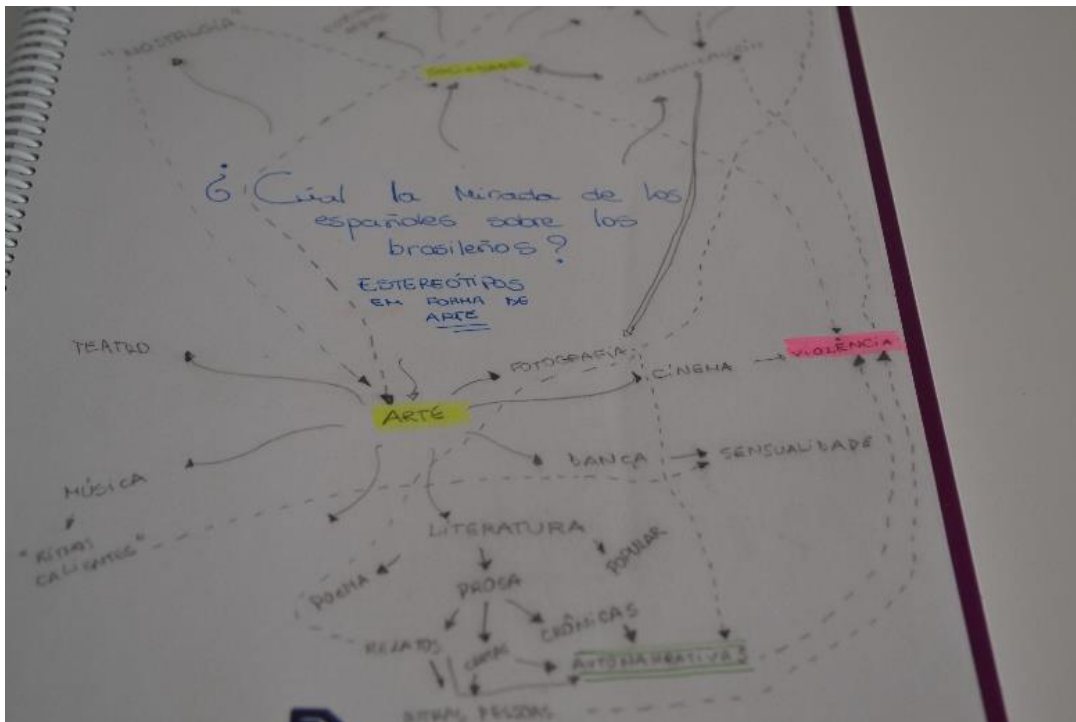 "NOSTALGIA"
SOCIEDADE
COMUNICACIÓN
¿Cúal la Mirada de los
españoles sobre los
brasileños?
ESTEREÓTIPOS
EM FORMA DE
ARTE
TEATRO
FOTOGRAFIA
CINEMA
VIOLÊNCIA
ARTE
DANÇA
SENSUALIDADE
MÚSICA
"RITMOS
CALIENTES"
LITERATURA
POPULAR
POEMA
PROSA
CRÔNICAS
RELATOS
CARTAS
AUTONARRATIVAS
PESSOAS